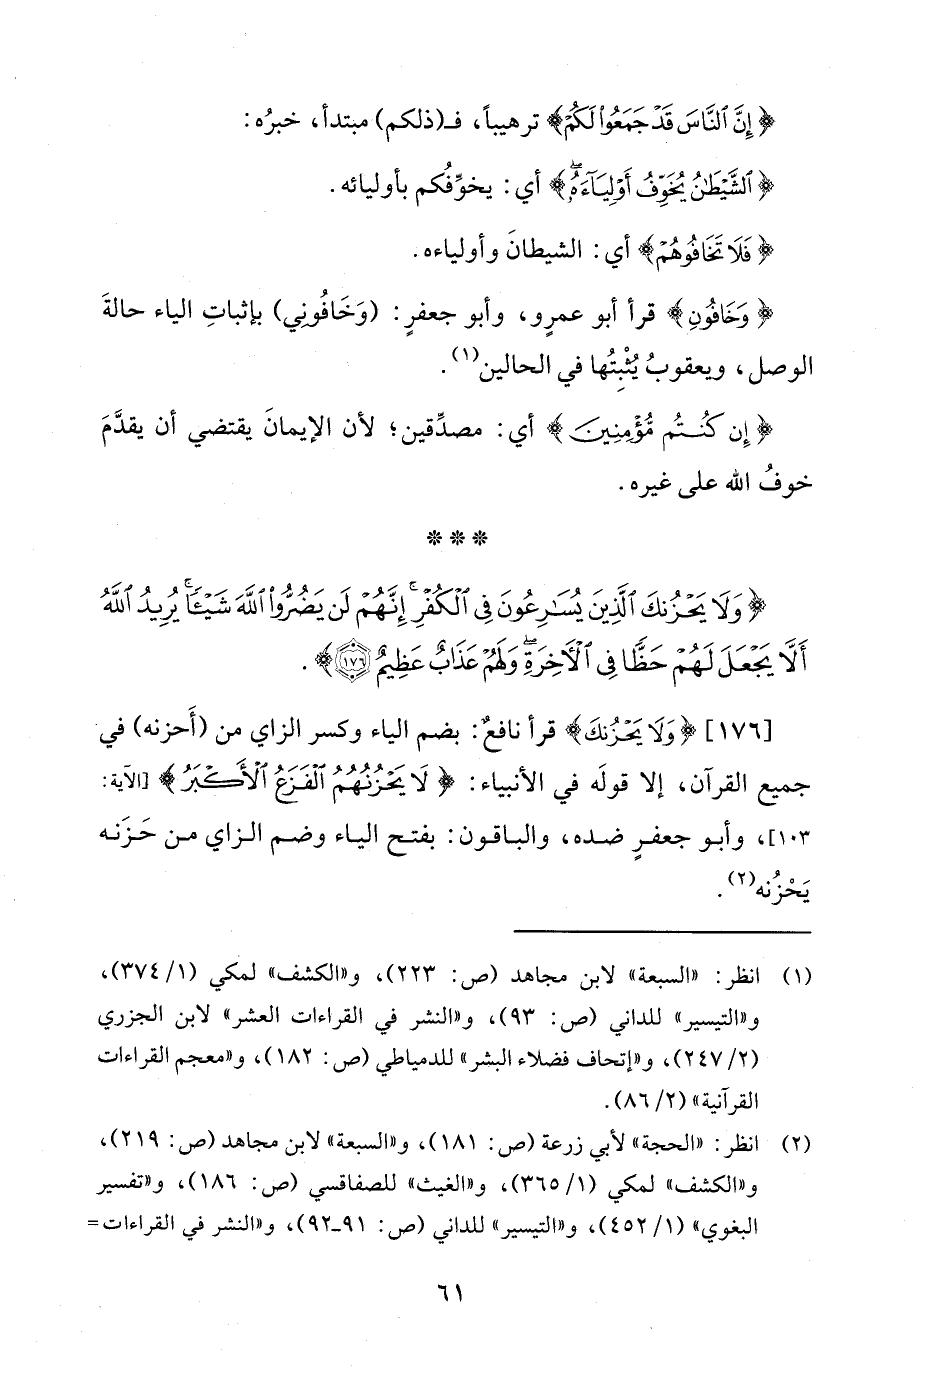 ﴿إِنَّ ٱلنَّاسَ قَدۡ جَمَعُواْ لَكُمۡ﴾ ترهيباً، فـ(ذلكم) مبتدأ، خبرُه:
﴿ٱلشَّيۡطَٰنُ يُخَوِّفُ أَوۡلِيَآءَهُۥۖ﴾ أي: يخوِّفُكم بأوليائه.
﴿فَلَا تَخَافُوهُمۡ﴾ أي: الشيطانَ وأولياءه.
﴿وَخَافُونِ﴾ قرأ أبو عمرٍو، وأبو جعفرٍ: (وَخَافُونِي) بإثباتِ الياء حالةَ
الوصل، ويعقوبُ يُثْبِتُها في الحالين(١).
﴿إِن كُنتُم مُّؤۡمِنِينَ﴾ أي: مصدِّقين؛ لأن الإيمانَ يقتضي أن يقدَّمَ
خوفُ الله على غيره.
* * *
﴿وَلَا يَحۡزُنكَ ٱلَّذِينَ يُسَٰرِعُونَ فِي ٱلۡكُفۡرِۚ إِنَّهُمۡ لَن يَضُرُّواْ ٱللَّهَ شَيۡـٔٗاۚ يُرِيدُ ٱللَّهُ
أَلَّا يَجۡعَلَ لَهُمۡ حَظّٗا فِي ٱلۡأٓخِرَةِۖ وَلَهُمۡ عَذَابٌ عَظِيمٌ ١٧٦﴾.
[١٧٦] ﴿وَلَا يَحۡزُنكَ﴾ قرأ نافعٌ: بضم الياء وكسر الزاي من (أَحزنه) في
جميع القرآن، إلا قولَه في الأنبياء: ﴿لَا يَحۡزُنُهُمُ ٱلۡفَزَعُ ٱلۡأَكۡبَرُ﴾ [الآية:
١٠٣]، وأبو جعفرٍ ضده، والباقون: بفتح الياء وضم الزاي من حَزَنه
يَحْزُنه(٢).
(١) انظر: «السبعة» لابن مجاهد (ص: ٢٢٣)، و«الكشف» لمكي (١/ ٣٧٤)،
و«التيسير» للداني (ص: ٩٣)، و«النشر في القراءات العشر» لابن الجزري
(٢/ ٢٤٧)، و«إتحاف فضلاء البشر» للدمياطي (ص: ١٨٢)، و«معجم القراءات
القرآنية» (٢/ ٨٦).
(٢) انظر: «الحجة» لأبي زرعة (ص: ١٨١)، و«السبعة» لابن مجاهد (ص: ٢١٩)،
و«الكشف» لمكي (١/ ٣٦٥)، و«الغيث» للصفاقسي (ص: ١٨٦)، و«تفسير
البغوي» (١/ ٤٥٢)، و«التيسير» للداني (ص: ٩١-٩٢)، و«النشر في القراءات=
٦١